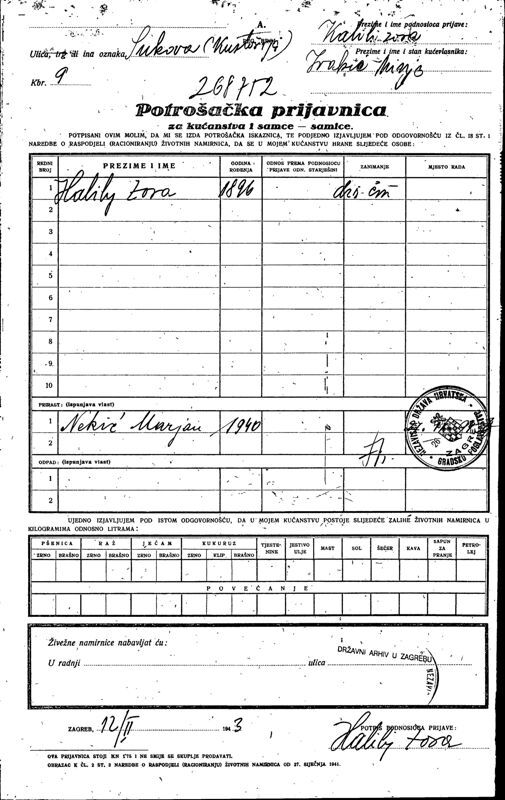 A.
Prezime i ime podnosioca prijave:
Halily Zora
Ulica, trg ili ina oznaka, Sukova (Kustošija)
Prezime i ime i stan kućevlasnika:
Kbr. 9
268752
Potrošačka prijavnica
za kućanstva i samce — samice.
POTPISANI OVIM MOLIM, DA MI SE IZDA POTROŠAČKA ISKAZNICA, TE PODJEDNO IZJAVLJUJEM POD ODGOVORNOŠĆU IZ ČL. 18 ST. 1
NAREDBE O RASPODJELI (RACIONIRANJU) ŽIVOTNIH NAMIRNICA, DA SE U MOJEM KUĆANSTVU HRANE SLIJEDEĆE OSOBE:
REDNI BROJ PREZIME I IME GODINA ROĐENJA ODNOS PREMA PODNOSIOCU PRIJAVE ODN. STARJEŠINI ZANIMANJE MJESTO RADA
1 Halily Zora 1896
2
3
4
5
6
7
8
9
10
PRIRAST: (ispunjava vlast)
1 Nekić Marjan 1940
2
NEZAVISNA DRŽAVA HRVATSKA
GRADSKO POGLAV
ZAGRE
ODPAD: (ispunjava vlast)
1
2
UJEDNO IZJAVLJUJEM POD ISTOM ODGOVORNOŠĆU, DA U MOJEM KUĆANSTVU POSTOJE SLIJEDEĆE ZALIHE ŽIVOTNIH NAMIRNICA U
KILOGRAMIMA ODNOSNO LITRAMA:
PŠENICA RAŽ JEČAM KUKURUZ TJESTENINE JESTIVO ULJE MAST SOL ŠEĆER KAVA SAPUN ZA PRANJE PETROLEJ
ZRNO BRAŠNO ZRNO BRAŠNO ZRNO BRAŠNO ZRNO KLIP BRAŠNO
POVEĆANJE
Živežne namirnice nabavljat ću:
U radnji ulica
DRŽAVNI ARHIV U ZAGREBU
ZAGREB, 12/II 1943
POTPIS PODNOSIOCA PRIJAVE:
Halily Zora
OVA PRIJAVNICA STOJI KN 0'75 I NE SMIJE SE SKUPLJE PRODAVATI.
OBRAZAC K ČL. 2 ST. 3 NAREDBE O RASPODJELI (RACIONIRANJU) ŽIVOTNIH NAMIRNICA OD 27. SIJEČNJA 1941.